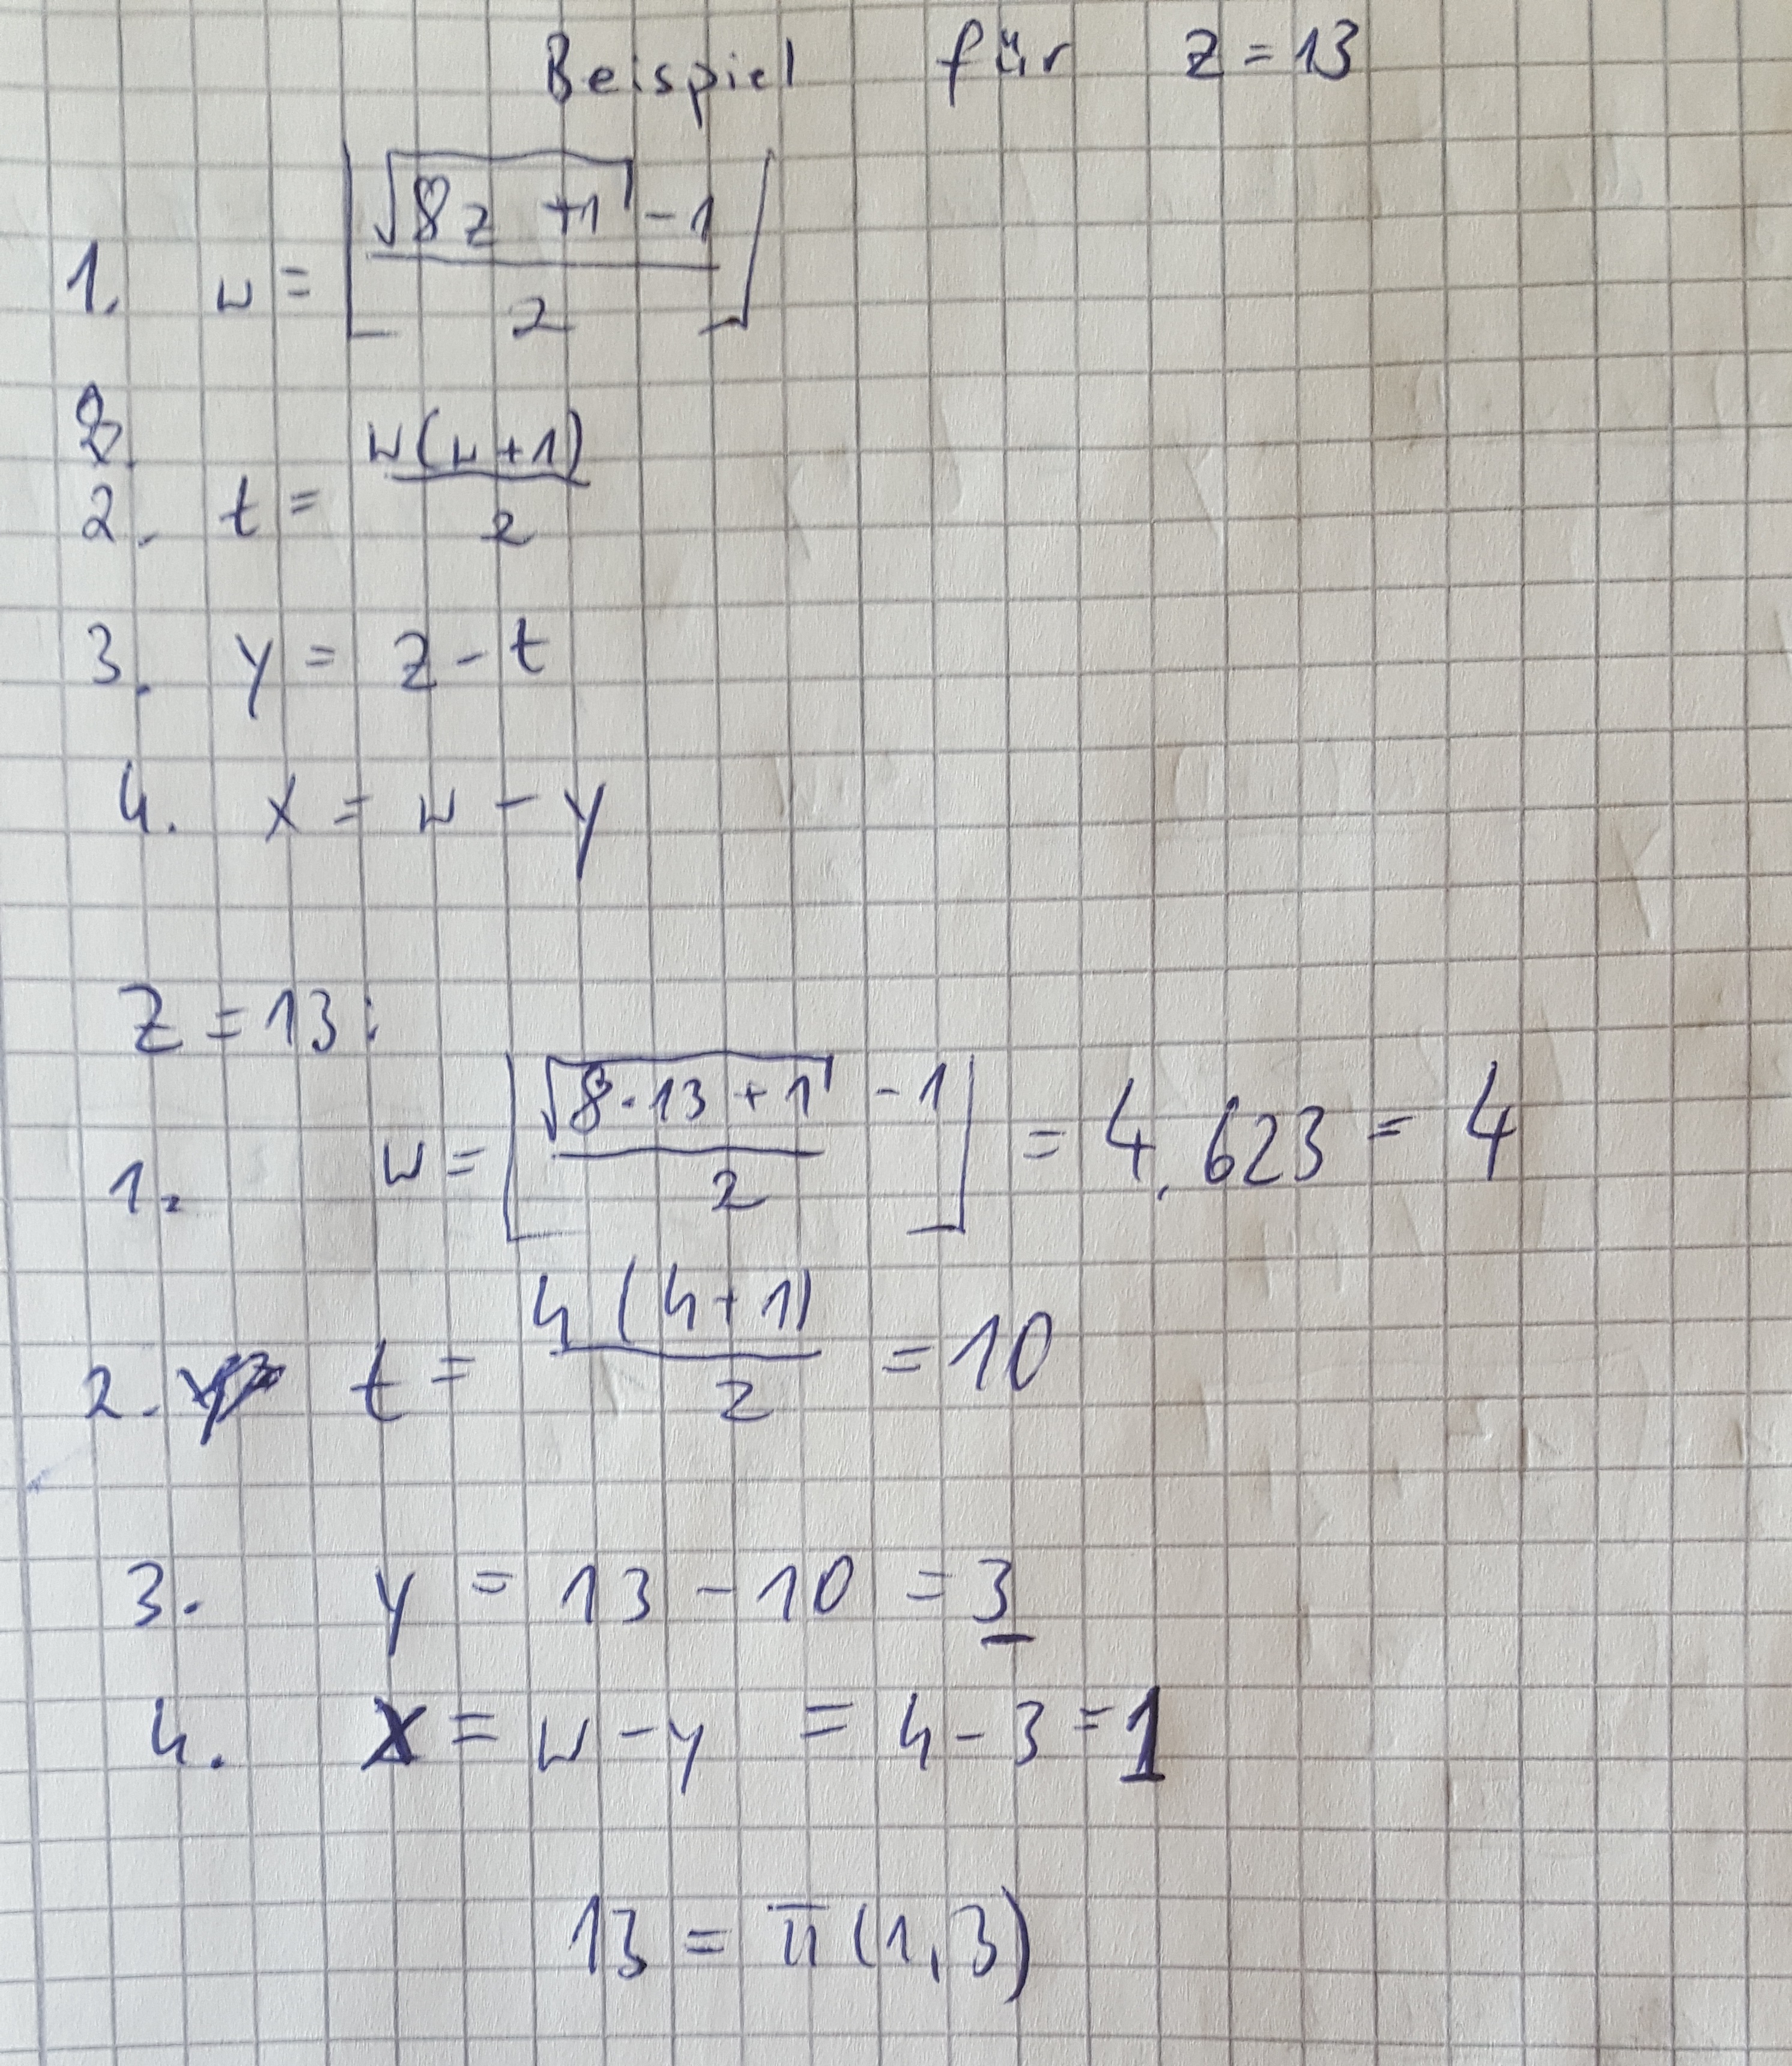 Beispiel für z = 13
1. w = ⌊(√(8z + 1) - 1) / 2⌋
2. t = w(w+1) / 2
3. y = z - t
4. x = w - y
z = 13:
1. w = ⌊(√(8·13 + 1) - 1) / 2⌋ = 4,623 = 4
2. t = 4(4+1) / 2 = 10
3. y = 13 - 10 = 3
4. x = w - y = 4 - 3 = 1
13 = π(1,3)